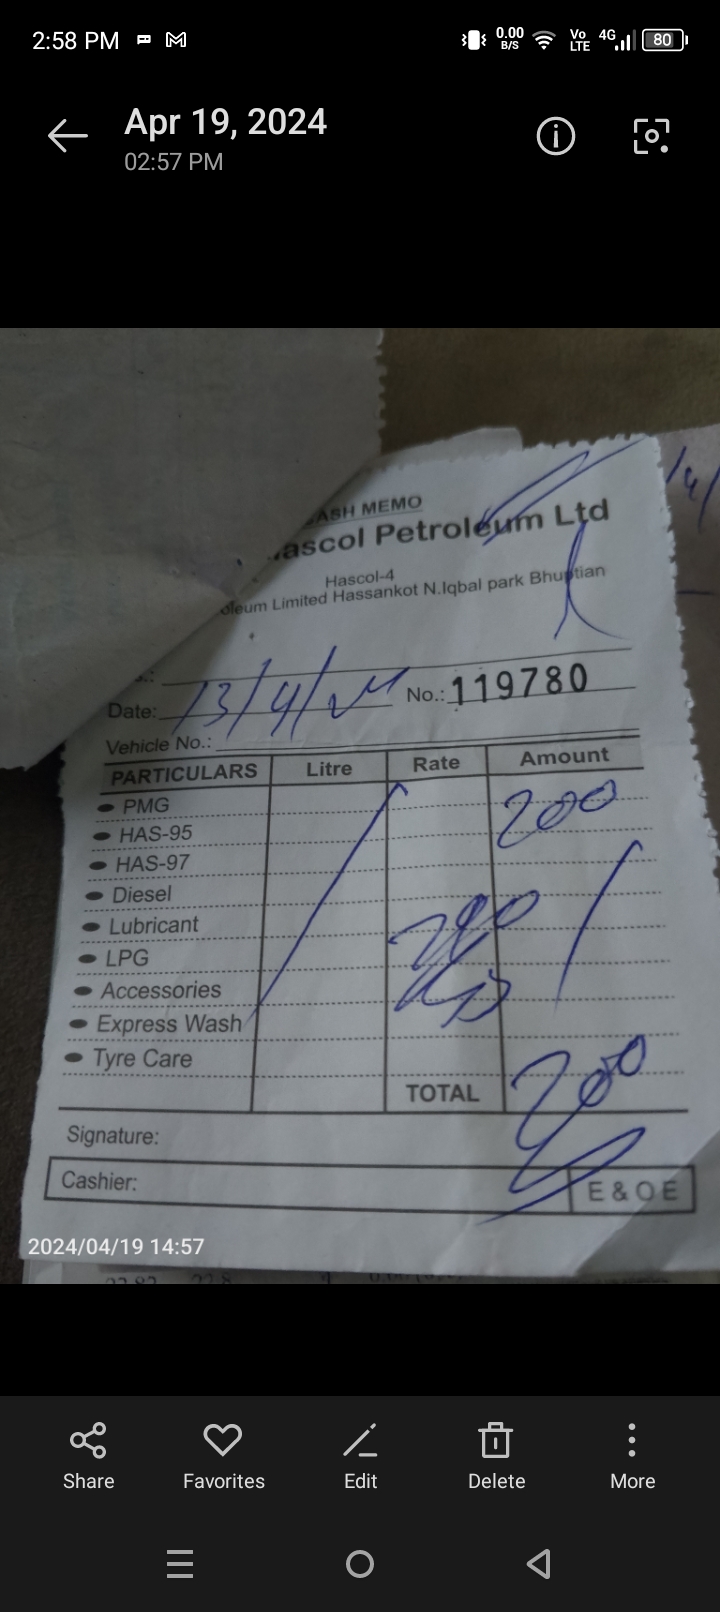 2:58 PM 0.00 B/S Vo LTE 4G 80
Apr 19, 2024
02:57 PM
ASH MEMO
ascol Petroleum Ltd
Hascol-4
oleum Limited Hassankot N.Iqbal park Bhuptian
Date: 13/4/24 No.: 119780
Vehicle No.:
PARTICULARS Litre Rate Amount
PMG 200
HAS-95
HAS-97
Diesel
Lubricant
LPG
Accessories
Express Wash
Tyre Care
TOTAL 200
Signature:
Cashier: E & O E
2024/04/19 14:57
Share Favorites Edit Delete More